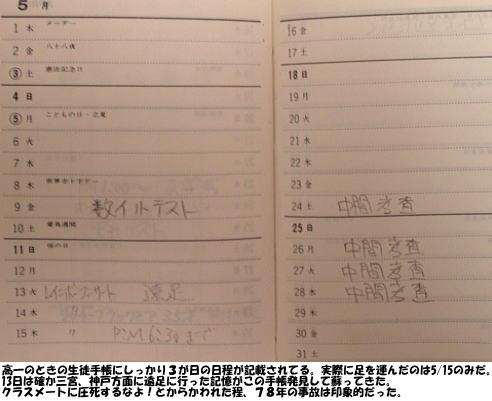 5 月
1 木 メーデー
2 金 八十八夜
③ 土 憲法記念日
4 日
⑤ 月 こどもの日・立夏
6 火
7 水
8 木 世界赤十字デー
9 金 数イ小テスト
10 土 愛鳥週間
11 日 母の日
12 月
13 火 レインボーコンサート 遠足
14 水
15 木 〃 P.M 6:30まで
16 金
17 土
18 日
19 月
20 火
21 水
22 木
23 金
24 土 中間考査
25 日
26 月 中間考査
27 火 中間考査
28 水 中間考査
29 木
30 金
31 土
高一のときの生徒手帳にしっかり３が日の日程が記載されてる。実際に足を運んだのは5/15のみだ。
13日は確か三宮、神戸方面に遠足に行った記憶がこの手帳発見して蘇ってきた。
クラスメートに圧死するなよ！とからかわれた程、７８年の事故は印象的だった。